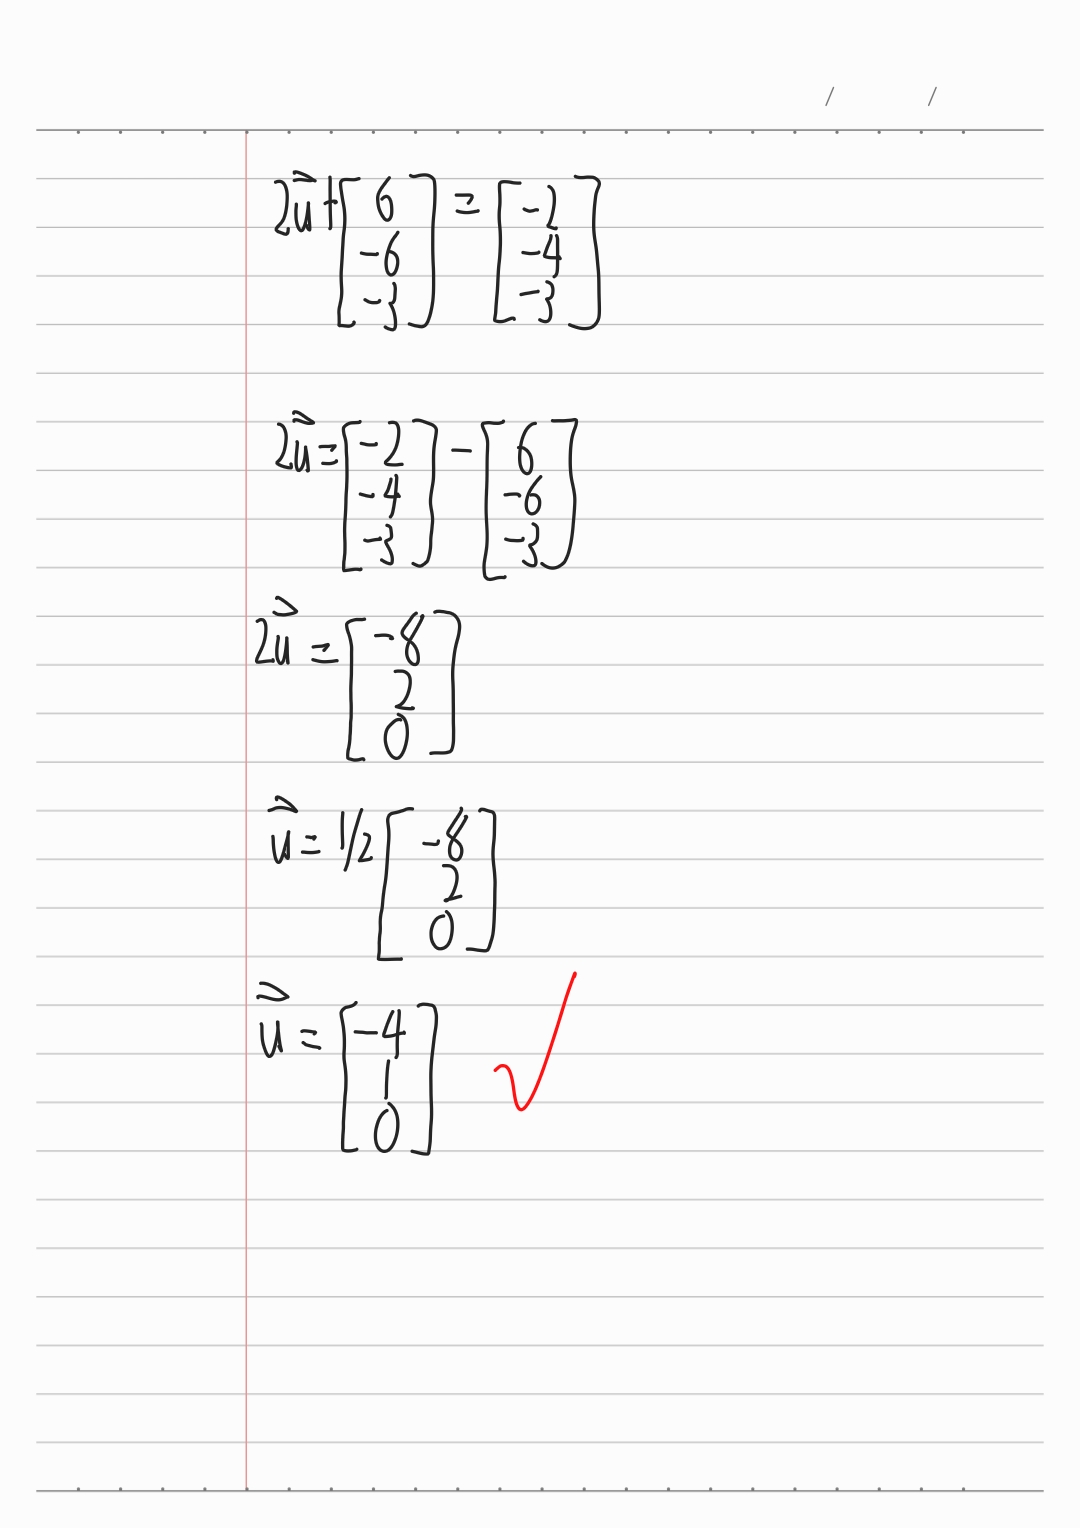 / /
2u⃗ + [6 -6 -3] = [-2 -4 -3]
2u⃗ = [-2 -4 -3] - [6 -6 -3]
2u⃗ = [-8 2 0]
u⃗ = 1/2 [-8 2 0]
u⃗ = [-4 1 0] ✓